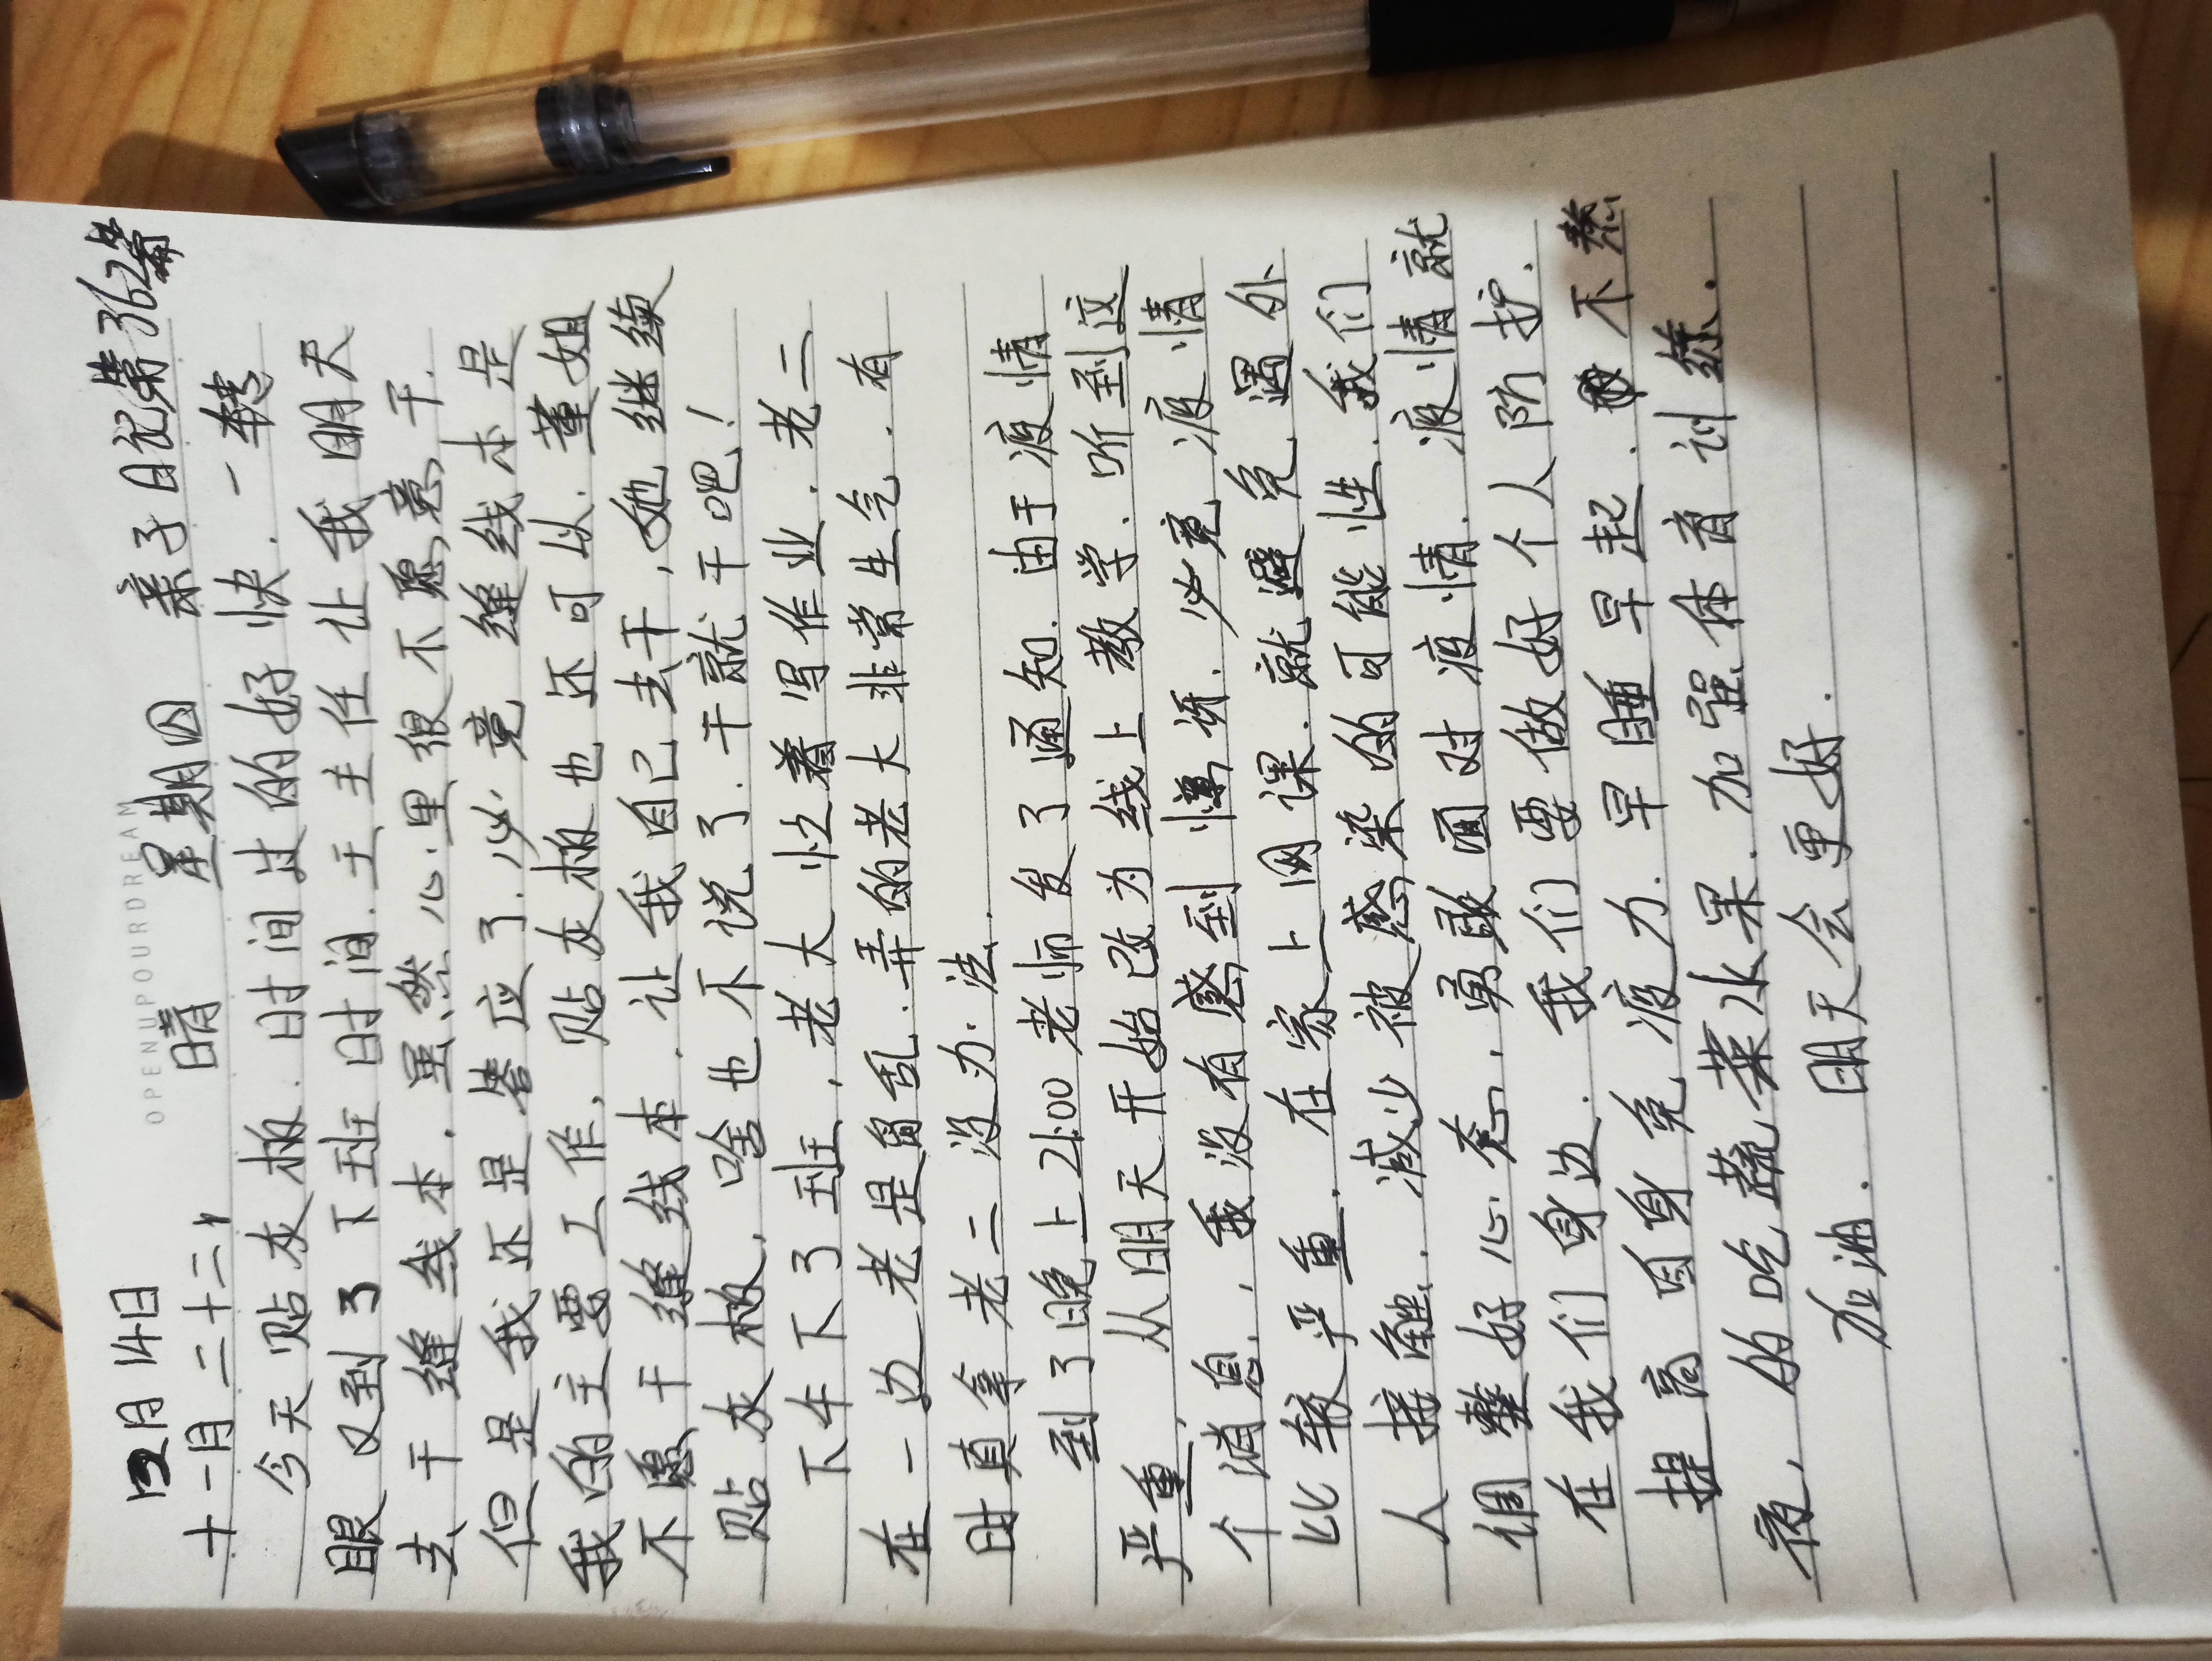 12月14日
十一月二十二, 晴 星期四 亲子日记第362篇
OPENUPOURDREAM
今天贴灰板.时间过的好快.一转
眼又到了下班时间.王主任让我明天
去干缝线本.虽然心里很不愿意干.
但是我还是答应了.必竟缝线本是
我的主要工作,贴灰板也还可以.董姐
不愿干缝线本.让我自己去干,她继续
贴灰板,啥也不说了.干就干吧!
下午下了班,老大忙着写作业.老二
在一边老是捣乱.弄的老大非常生气.有
时真拿老二没办法.
到了晚上21:00老师发了通知.由于疫情
严重,从明天开始改为线上教学.听到这
个消息,我没有感到惊讶.必竟疫情
比较严重.在家上网课.就避免遇外
人接触.减少被感染的可能性.我们
调整好心态,勇敢面对疫情.疫情就
在我们身边.我们要做好个人防护.
提高自身免疫力.早睡早起.不熬
夜,的吃蔬菜水果.加强体育训练.
加油.明天会更好.